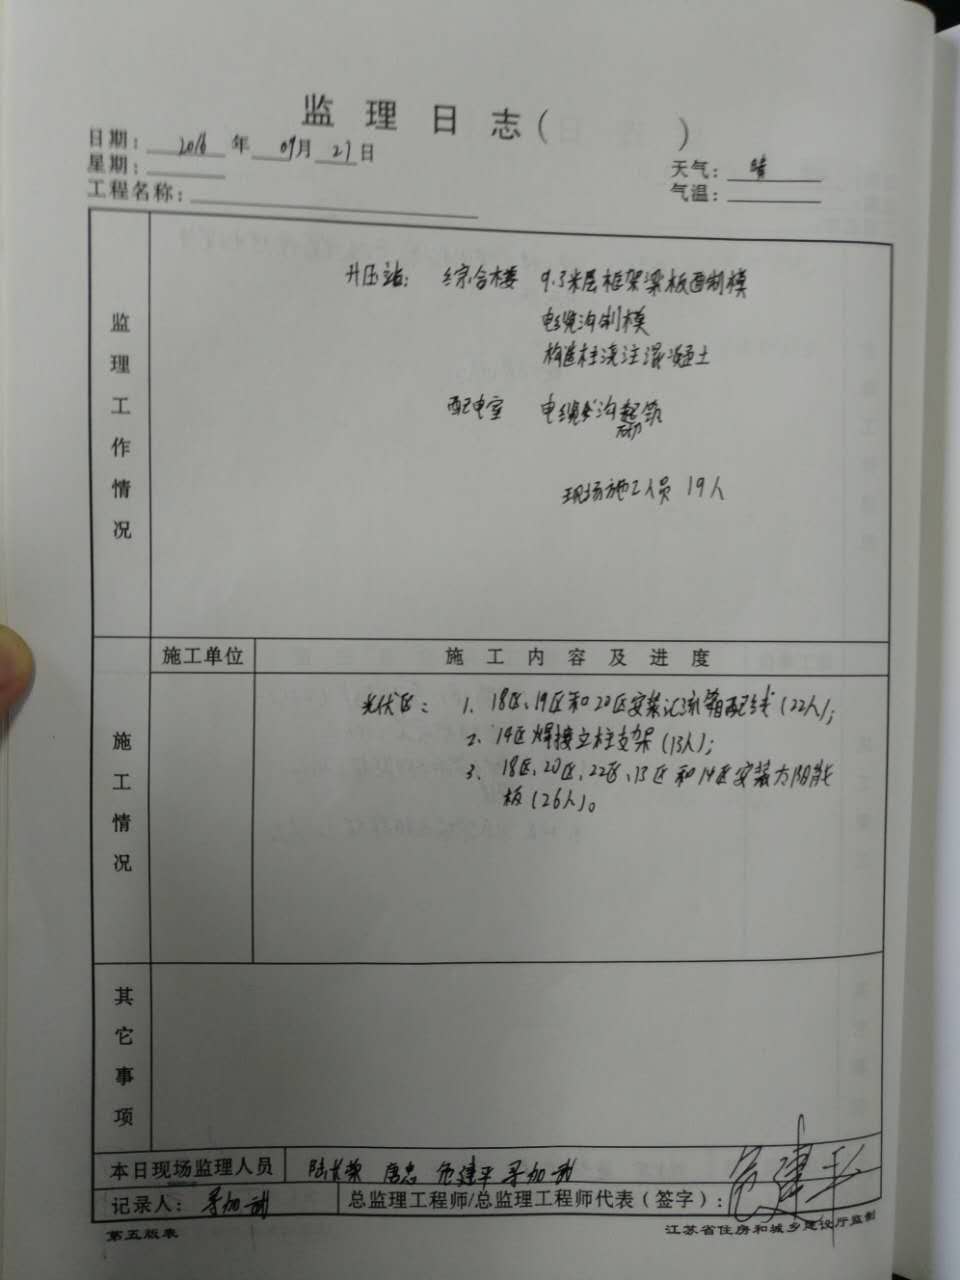 监 理 日 志 ( )
日期： 2016 年 09 月 27 日
星期：
天气： 晴
气温：
工程名称：
监理工作情况
升压站： 综合楼 9.3米层框架梁板面制模
电缆沟制模
构造柱浇注混凝土
配电室 电缆沟砌筑
现场施工人员 19人
施工单位 施 工 内 容 及 进 度
施工情况
光伏区： 1、18区、19区和20区安装汇流箱配线（22人）；
2、14区焊接立柱支架（13人）；
3、18区、20区、22区、13区和14区安装太阳能
板（26人）。
其它事项
本日现场监理人员 陆长荣 唐忠 危建平
记录人： 总监理工程师/总监理工程师代表（签字）： 危建平
第五版表 江苏省住房和城乡建设厅监制